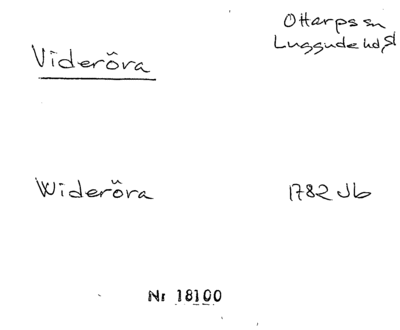 Ottarps sn
Luggude hd, sl
Videröra
Wideröra 1782 Jb
Nr 18100